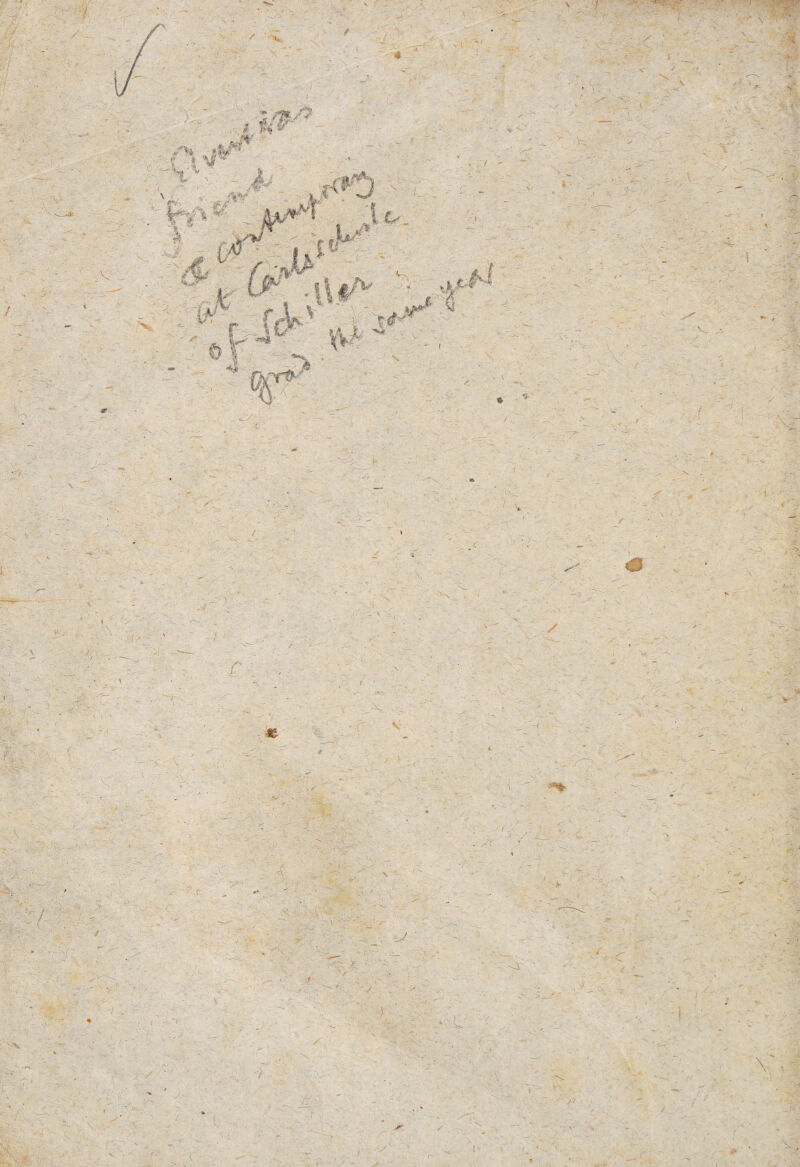 Elwert was
friend
& contemporary
at Carlsschule
of Schiller
grad. the same year